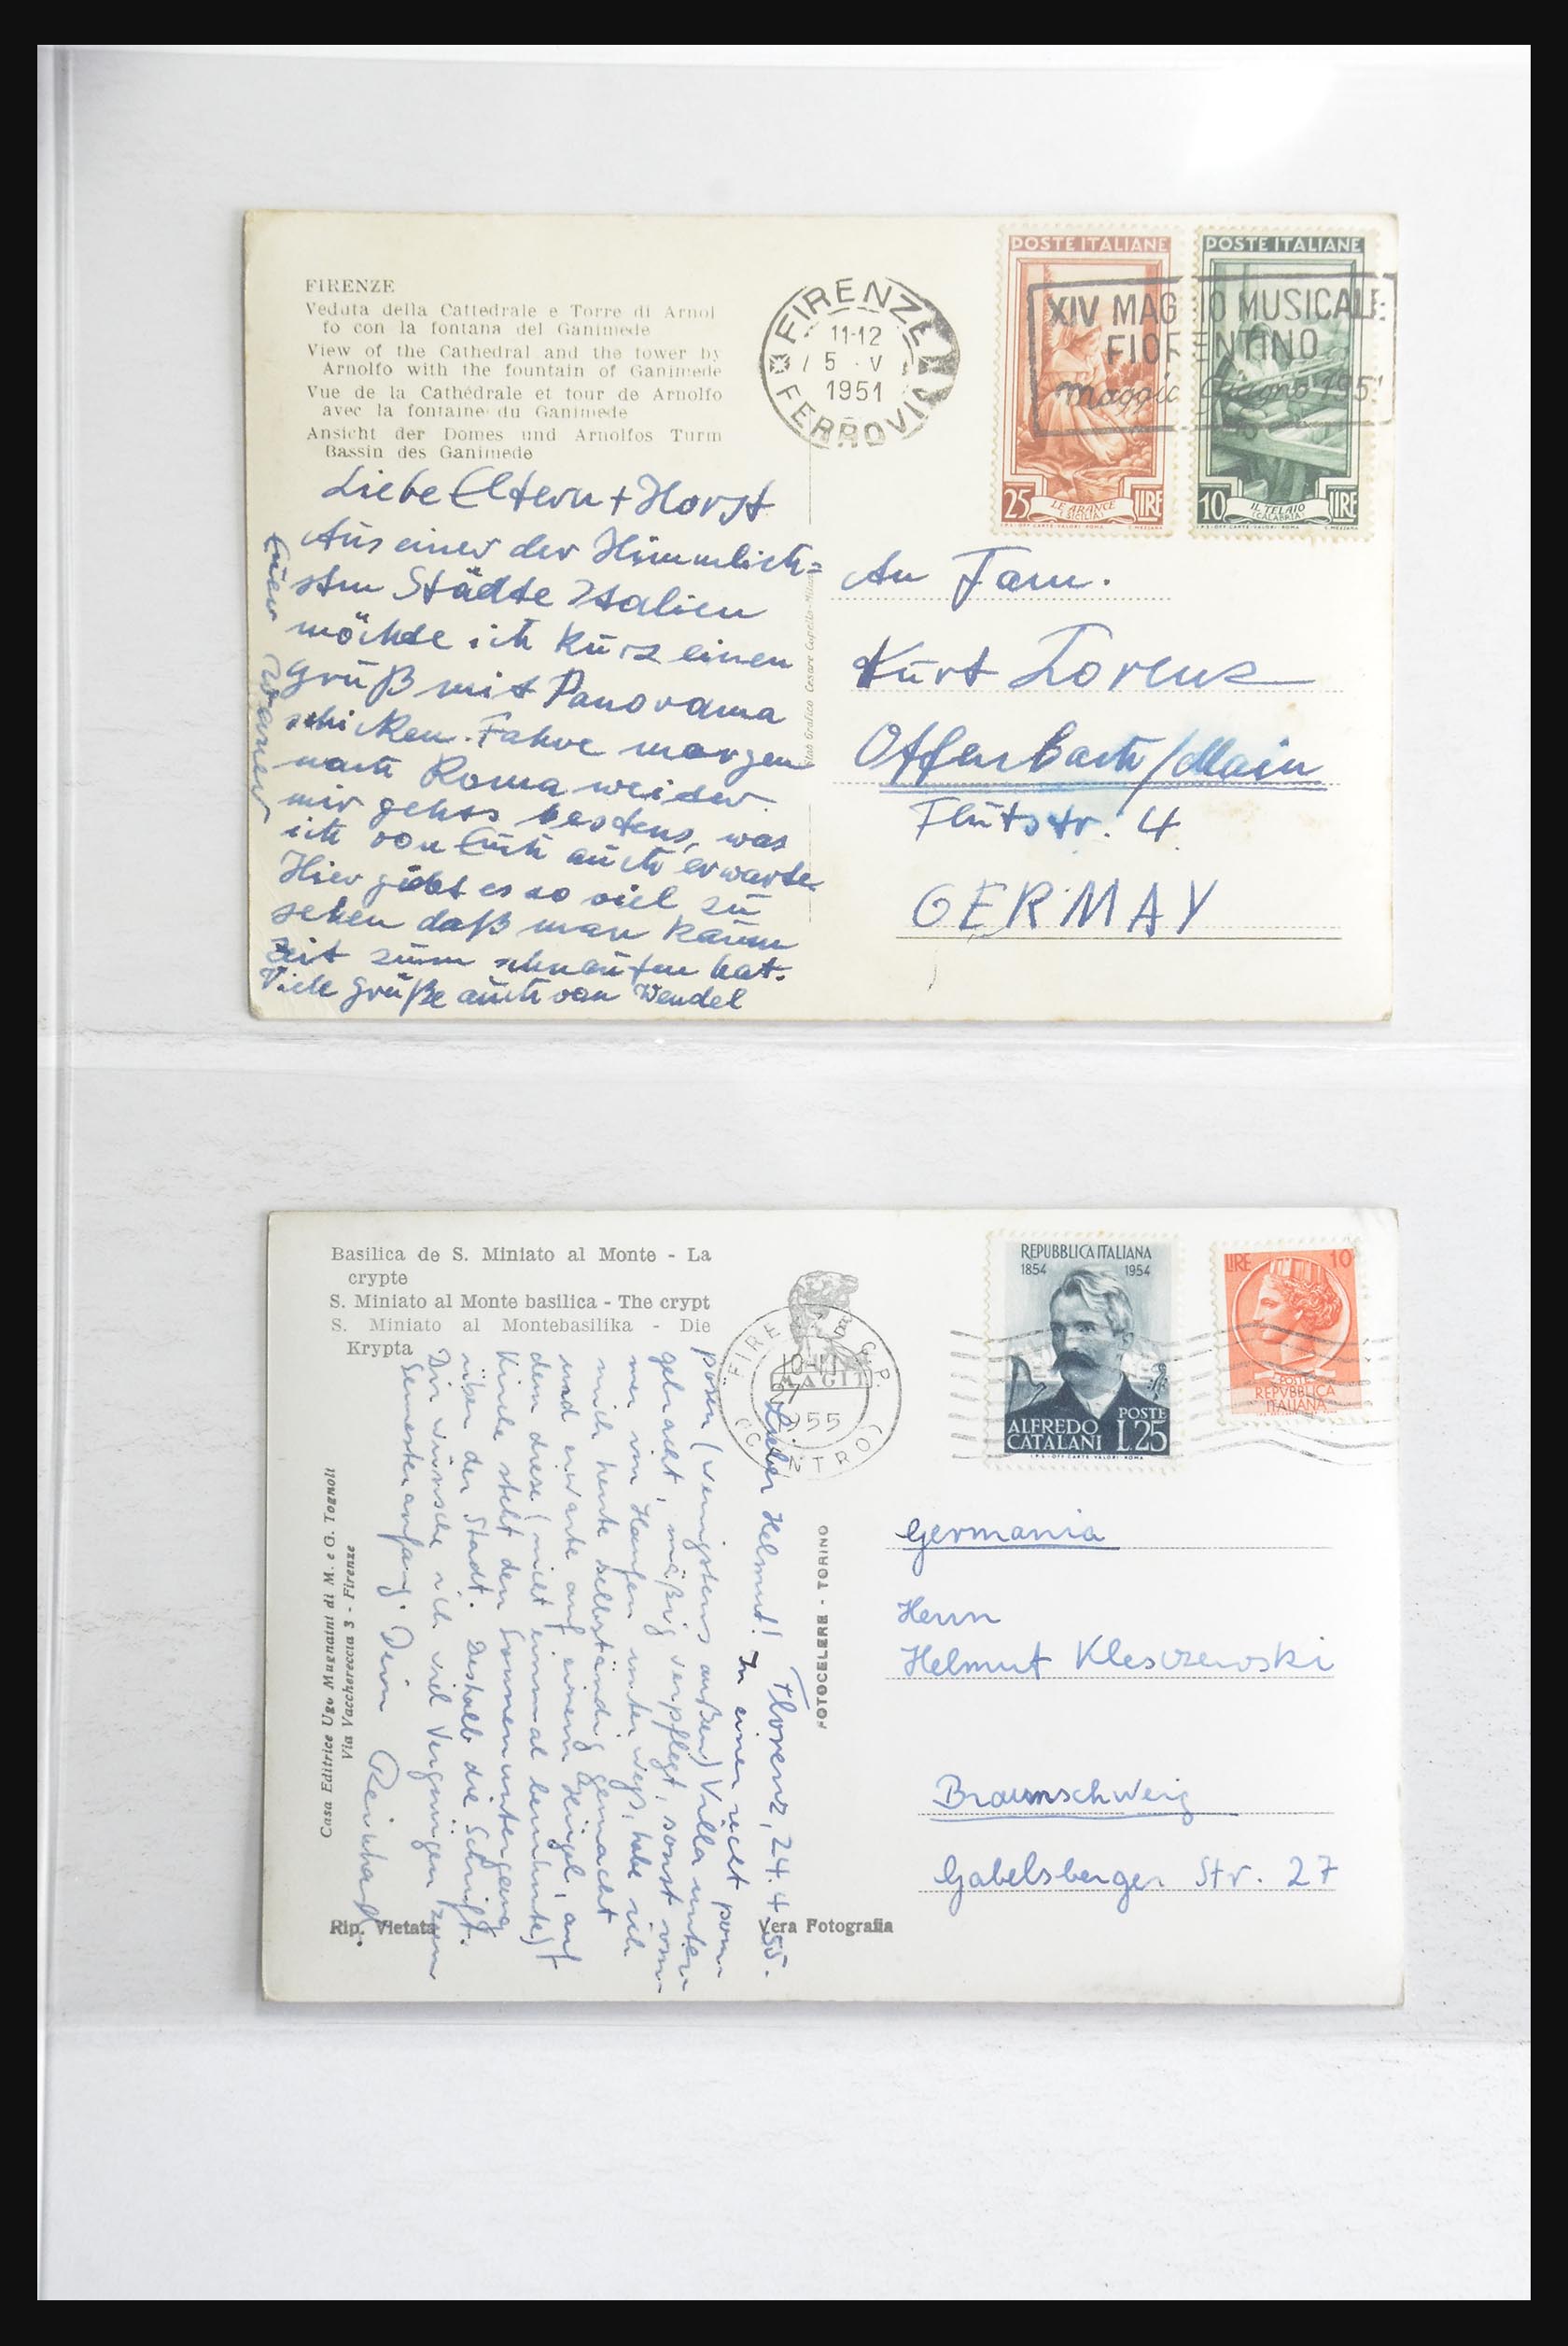 FIRENZE
Veduta della Cattedrale e Torre di Arnol
fo con la fontana del Ganimede
View of the Cathedral and the tower by
Arnolfo with the fountain of Ganimede
Vue de la Cathédrale et tour de Arnolfo
avec la fontaine du Ganimede
Ansicht der Domes und Arnolfos Turm
Bassin des Ganimede
FIRENZE
11-12
5 · V
1951
FERROVIA
POSTE ITALIANE
25 LIRE
LE ARANCE
(SICILIA)
I.P.S.-OFF. CARTE-VALORI-ROMA
POSTE ITALIANE
10 LIRE
IL TELAIO
(CALABRIA)
I.P.S.-OFF. CARTE-VALORI-ROMA
XIV MAGGIO MUSICALE
FIORENTINO
maggio giugno 1951
Liebe Eltern + Horst
Aus einer der Himmlich=
sten Städte Italien
möchte ich kurz einen
Gruß mit Panorama
schicken. Fahre morgen
nach Roma weiter.
mir gehts bestens, was
ich von Euch auch erwarte
Hier giebt es so viel zu
sehen daß man kaum
Zeit zum schnaufen hat.
Viele Grüße auch von Wendel
Euer Werner
Stab Grafico Cesare Capello-Milano
An Fam.
Kurt Lorenz
Offenbach/Main
Flutstr. 4
GERMAY
Basilica de S. Miniato al Monte - La
crypte
S. Miniato al Monte basilica - The crypt
S. Miniato al Montebasilika - Die
Krypta
MAGIT
FIRENZE C.P.
10-11
1955
(CENTRO)
REPUBBLICA ITALIANA
1854 1954
ALFREDO
CATALANI
POSTE
L.25
I.P.S.-OFF. CARTE-VALORI-ROMA
LIRE 10
POSTE
REPVBBLICA
ITALIANA
Florenz, 24.4.55.
Lieber Helmut! In einer recht pom-
pösen (wenigstens außen) Villa unter
gebracht, mäßig verpflegt, sonst im-
mer im Haufen unterwegs, habe ich
mich heute selbständig gemacht
und erwarte auf einem Hügel, auf
dem diese (nicht einmal berühmte)
Kirche steht den Sonnenuntergang
über der Stadt. Deshalb die Schrift.
Dir wünsche ich viel Vergnügen zum
Semesteranfang. Dein
Reinhard.
Casa Editrice Ugo Mugnaini di M. e G. Tognoli
Via Vacchereccia 3 - Firenze
FOTOCELERE - TORINO
Rip. Vietata
Vera Fotografia
Germania
Herrn
Helmut Kleszewski
Braunschweig
Gabelsberger Str. 27